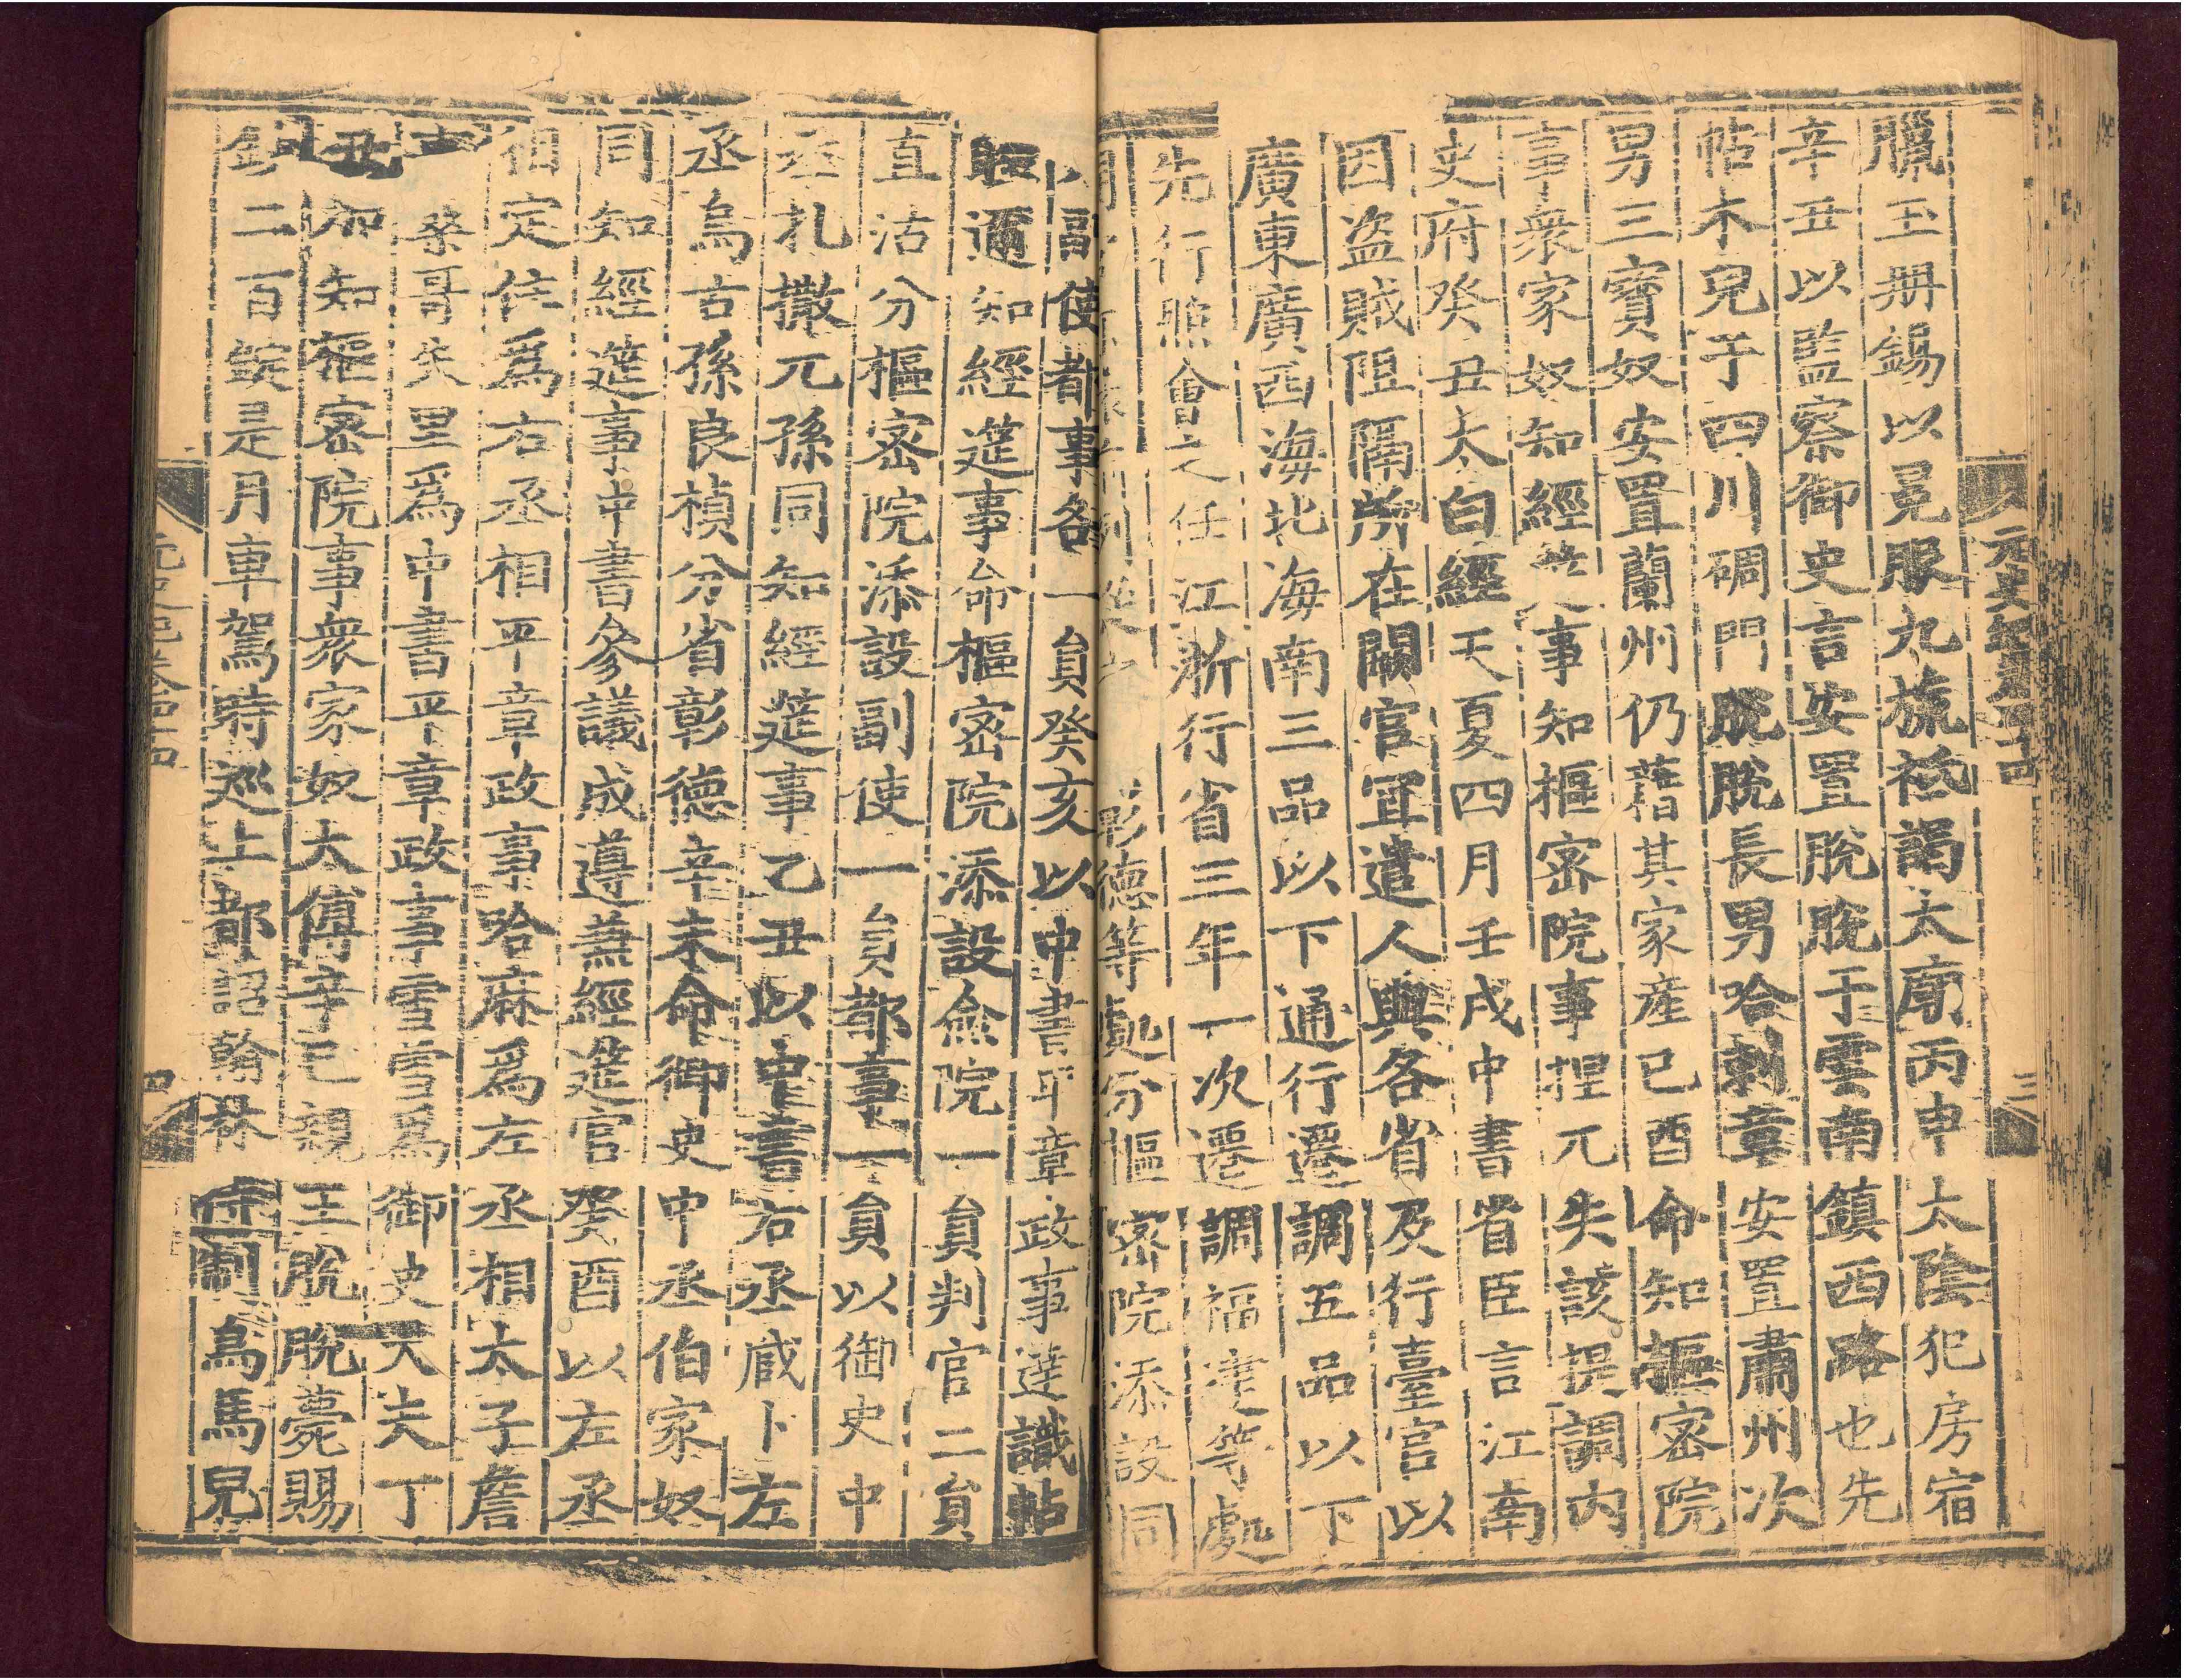 元史紀卷四十四
三
臘玉册錫以冕服九旒祗謁太廟丙申太陰犯房宿
辛丑以監察御史言安置脫脫于雲南鎮西路也先
帖木兒于四川碉門脫脫長男哈剌章安置肅州次
男三寶奴安置蘭州仍藉其家産已酉命知樞密院
事衆家奴知經事知樞密院事捏兀失該提調内
史府癸丑太白經天夏四月壬戌中書省臣言江南
因盗賊阻隔所在闕官宜遣人與各省及行臺官以
廣東廣西海北海南三品以下通行遷調五品以下
先行照會之任江浙行省三年一次遷調福建等處
彰德等處分樞密院添設同
副使都事各一貟癸亥以中書平章政事達識帖
睦邇知經筵事命樞密院添設僉院一貟判官二貟
直沽分樞密院添設副使一貟都事一貟以御史中
丞扎撒兀孫同知經筵事乙丑以中書右丞咸卜左
丞烏古孫良楨分省彰德辛未命御史中丞伯家奴
同知經筵事中書叅議成遵兼經筵官癸酉以左丞
相定住爲右丞相平章政事哈麻爲左丞相太子詹
桑哥失里爲中書平章政事雪雪爲御史大夫丁
丑加知樞密院事衆家奴太傅辛巳親王脫脫薨賜
鈔二百錠是月車駕時巡上都詔翰林待制烏馬兒
四